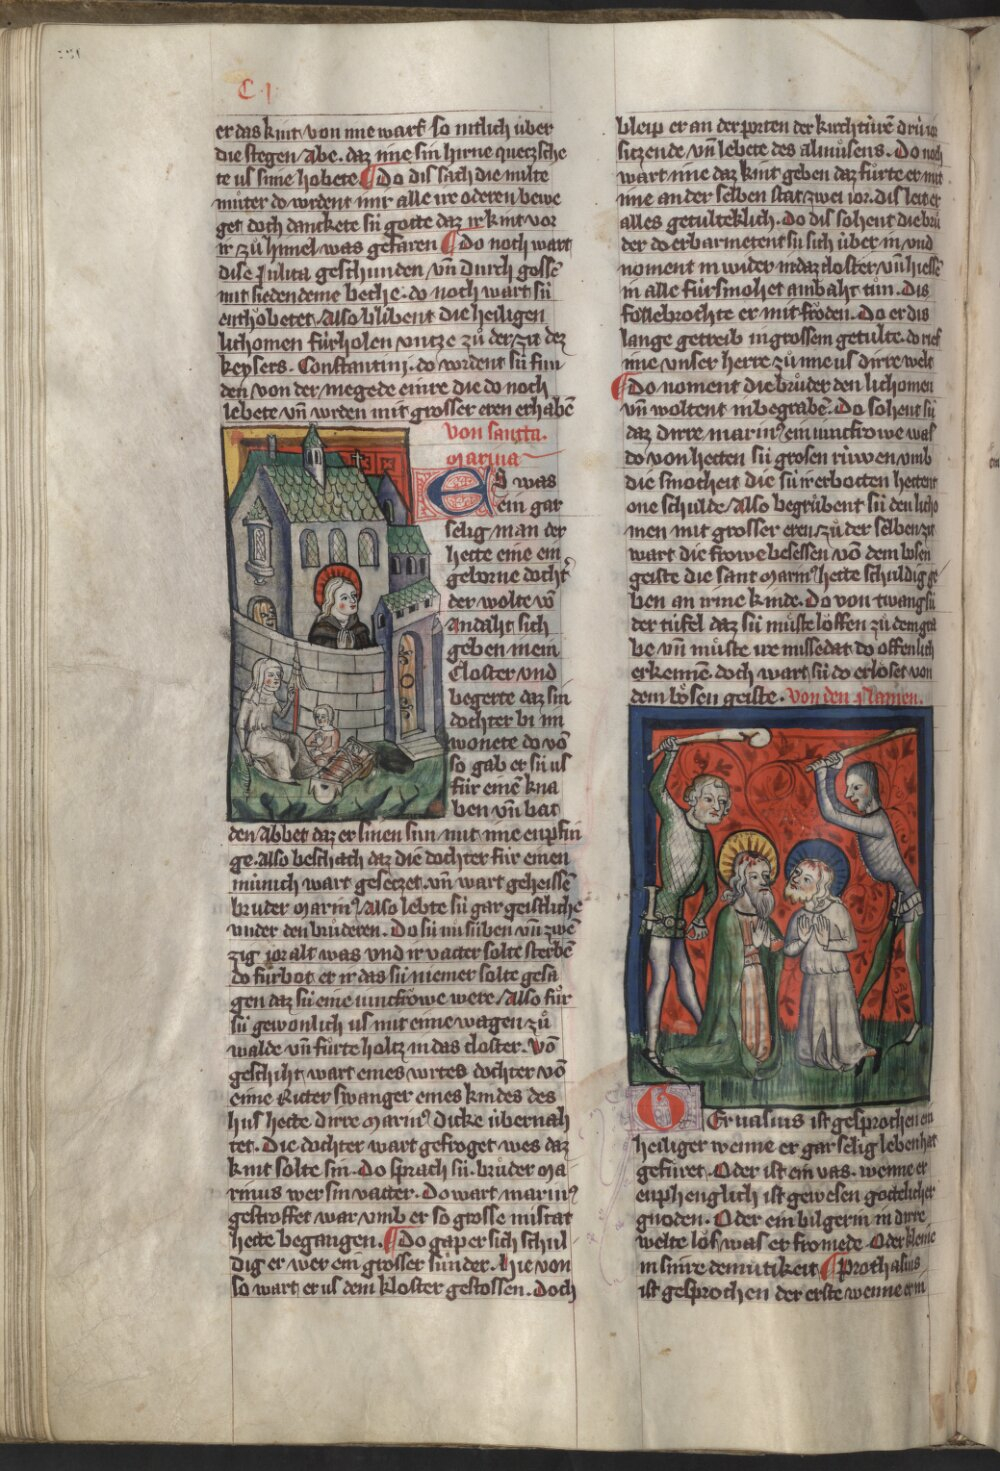 C j
er das kint von ime warf so nitlich über
die stegen abe. daz ime sin hirne quetzsche
te us sime hobete. Do dis sach die milte
muͦter do wrdent mit alle ire oderen bewe
get doch danckete sü gotte daz ir kint vor
ir zuͦ himel was gefaren Do noch wart
dise Julita geschunden vn̄ durch gossē
mit siedendeme beche. do noch wart sü
enthobetet. Also blibent die heiligen
lichomen fürholen vntze zuͦ der zit dez
keysers. Constantini. do wrdent sü fun
den von der megede einre die do noch
lebete vn̄ wrden mit grosser eren erhabē
von sancta.
marina
ES was
ein gar
selig man der
hette eine ein
geborne docht᾽
der wolte vō
andaht sich
geben in ein
Closter vnd
begerte daz sin
dochter bi im
wonete do vō
so gab er sü us
für einē kna
ben vn̄ bat
den abbet daz er sinen sun mit ime enpfin
ge. Also beschach daz die dochter für einen
münich wart gesetzet. vn̄ wart geheissē
bruder marin᾽ Also lebte sü gar geistliche
vnder den bruͤderen. Do sü nu süben vn̄ zwē
zig jor alt was vnd ir vatter solte sterbē
do fürbot er ir das sü niemer solte gesa
gen daz sü eine iuncfrowe were. Also fuͦr
sü gewonlich us mit eime wagen zuͦ
walde vn̄ fuͦrte holtz in das closter. Vō
geschiht wart eines wrtes dochter vō
eime Ritter swanger eines kindes des
hus hette dirre Marin᾽ dicke übernah
tet. Die dochter wart gefroget wes daz
kint solte sin. Do sprach sü. bruͦder Ma
rinus wer sin vatter. Do wart marin᾽
gestroffet war vmb er so grosse missetat
hette begangen. Do gap er sich schul
dig er wer ein grosser sünder. Hie von
so wart er us dem kloster gestossen. Doch
bleip er an der porten der kirchtürē drü ior
sitzende vn̄ lebete des almuͦsens. Do noch
wart ime daz kint geben daz fuͦrte er mit
ime an der selben stat zwei ior. dis leit er
alles getulteklich. Do dis sohent die bruͤ
der do erbarmetent sü sich über in vnd
noment in wider in daz closter vn̄ hiessē
in alle fürsmohet ambaht tuͦn. Dis
follebrochte er mit froͤden. Do er dis
lange getreib in grossem getulte. do rief
ime vnser herre zuͦ ime us dirre welt
Do noment die bruͤder den lichomen
vn̄ woltent in begrabē. Do sohent sü
daz dirre marin᾽ ein iuncfrowe was
do von hetten sü grosen rüwen vmb
die smocheit die sü ir erbotten hettent
one schulde. Also begruͤbent sü den licho
men mit grosser eren. zuͦ der selben zit
wart die frowe besessen vō dem bosen
geiste die sant Marin᾽ hette schuldig ge
ben an irme kinde. Do von twang sü
der tüfel daz sü muͤste loͤffen zuͦ dem gra
be vn̄ muͤste ire missedat do offenlich
erkennē. doch wart sü do erloset von
dem boͤsen geiste. Von den Namen.
GEruasius ist gesprochen ein
heiliger wenne er gar selig leben hat
gefüret. Oder ist ein vas. wenne er
enphenglich ist gewesen goettelicher
gnoden. Oder ein bilgerin in dirre
welte los was er froemede. Oder kleine
in sinre demuͤtikeit Prothasius
ist gesprochen der erste wenne er in